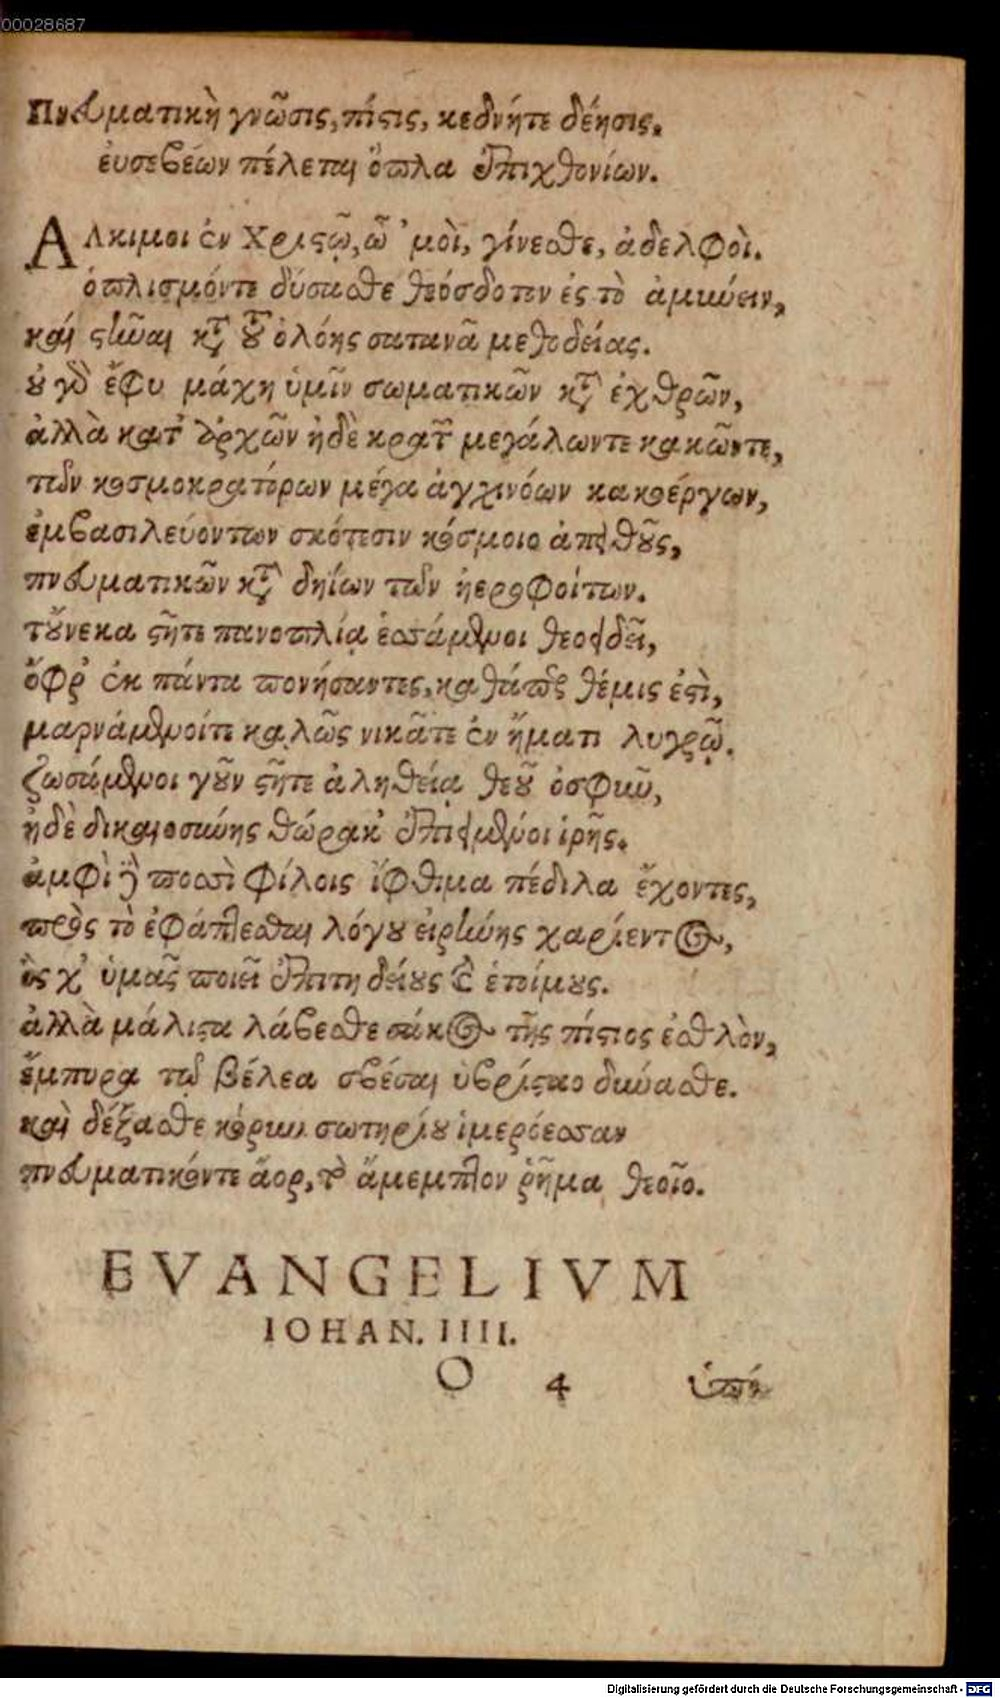 00028687
Πνευματικὴ γνῶσις, πίστις, κεδνήτε δέησις,
ἐυσεβέων πέλεται ὅπλα ἐπιχθονίων.
Αλκιμοι ἐν Χριστῷ, ὦ 'μοὶ, γίνεσθε, ἀδελφοὶ.
ὁπλισμόντε δύσασθε θεόσδοτον ἐς τὸ ἀμύνειν,
καὶ στῆναι κατὰ τοῦ ὀλόης σατανᾶ μεθοδείας.
οὐ γὰρ ἔφυ μάχη ὑμῖν σωματικῶν κατὰ ἐχθρῶν,
ἀλλὰ κατ' ἀρχῶν ἠδὲ κρατῶν μεγάλωντε κακῶντε,
τῶν κοσμοκρατόρων μέγα ἀγχινόων κακοέργων,
ἐμβασιλεύοντων σκότεσιν κόσμοιο ἀπειθοῦς,
πνευματικῶν κατὰ δηΐων τῶν ἠεροφοίτων.
τοὔνεκα στῆτε πανοπλίᾳ ἑσσάμενοι θεοειδεῖ,
ὄφρ' ἐκ πάντα πονήσαντες, καθάπερ θέμις ἐστὶ,
μαρνάμενοίτε καλῶς νικᾶτε ἐν ἤματι λυγρῷ.
ζωσάμενοι γοῦν στῆτε ἀληθείᾳ θεοῦ ὀσφῦν,
ἠδὲ δικαιοσύνης θώρακ' ἐπιειμένοι ἱρῆς.
ἀμφὶ δὲ ποσσὶ φίλοις ἴφθιμα πέδιλα ἔχοντες,
πρὸς τὸ ἐφάπτεσθαι λόγου εἰρήνης χαρίεντος,
ὅς χ' ὑμᾶς ποιεῖ ἐπιτηδείους καὶ ἑτοίμους.
ἀλλὰ μάλιστα λάβεσθε σάκος τῆς πίστιος ἐσθλὸν,
ἔμπυρα τῷ βέλεα σβέσαι ὑβριστᾶο δύνασθε.
καὶ δέξασθε κόρυν σωτηρίου ἱμερόεσσαν
πνευματικόντε ἄορ, τὸ ἄμεμπτον ῥῆμα θεοῖο.
EVANGELIVM
IOHAN. IIII.
O 4 ὑπὲρ
Digitalisierung gefördert durch die Deutsche Forschungsgemeinschaft - DFG